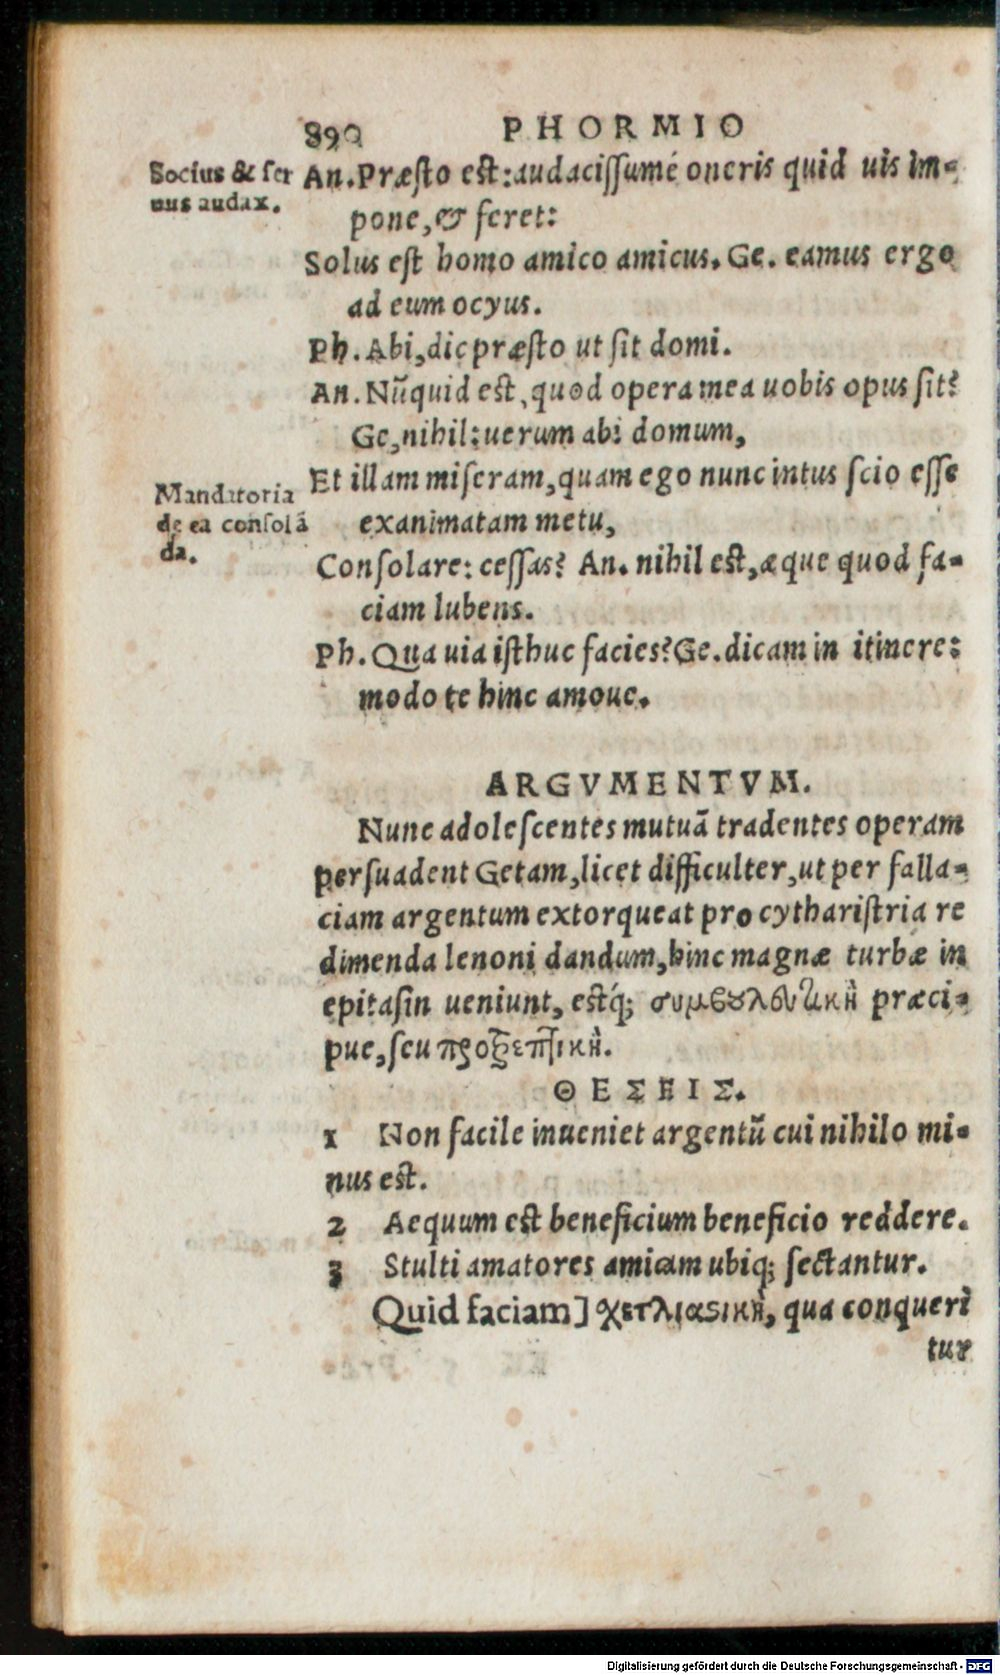 890 PHORMIO
Socius & ser
uus audax.
An. Præsto est: audacissumé oneris quid uis im-
pone, & feret:
Solus est homo amico amicus. Ge. eamus ergo
ad eum ocyus.
Ph. Abi, dic præsto ut sit domi.
An. Nũquid est, quod opera mea uobis opus sit?
Ge, nihil: uerum abi domum,
Mandatoria
de ea consolã
da.
Et illam miseram, quam ego nunc intus scio esse
exanimatam metu,
Consolare: cessas? An. nihil est, æque quod fa-
ciam lubens.
Ph. Qua uia isthuc facies? Ge. dicam in itinere:
modo te hinc amoue.
ARGVMENTVM.
Nunc adolescentes mutuã tradentes operam
persuadent Getam, licet difficulter, ut per falla-
ciam argentum extorqueat pro cytharistria re
dimenda lenoni dandum, hinc magnæ turbæ in
epitasin ueniunt, estq́; συμβουλευτικὴ præci-
pue, seu προτρεπτικὴ.
ΘΕΣΕΙΣ.
1 Non facile inueniet argentũ cui nihilo mi-
nus est.
2 Aequum est beneficium beneficio reddere.
3 Stulti amatores amicam ubiq; sectantur.
Quid faciam] σχετλιαστικὴ, qua conqueri
tur
Digitalisierung gefördert durch die Deutsche Forschungsgemeinschaft - DFG